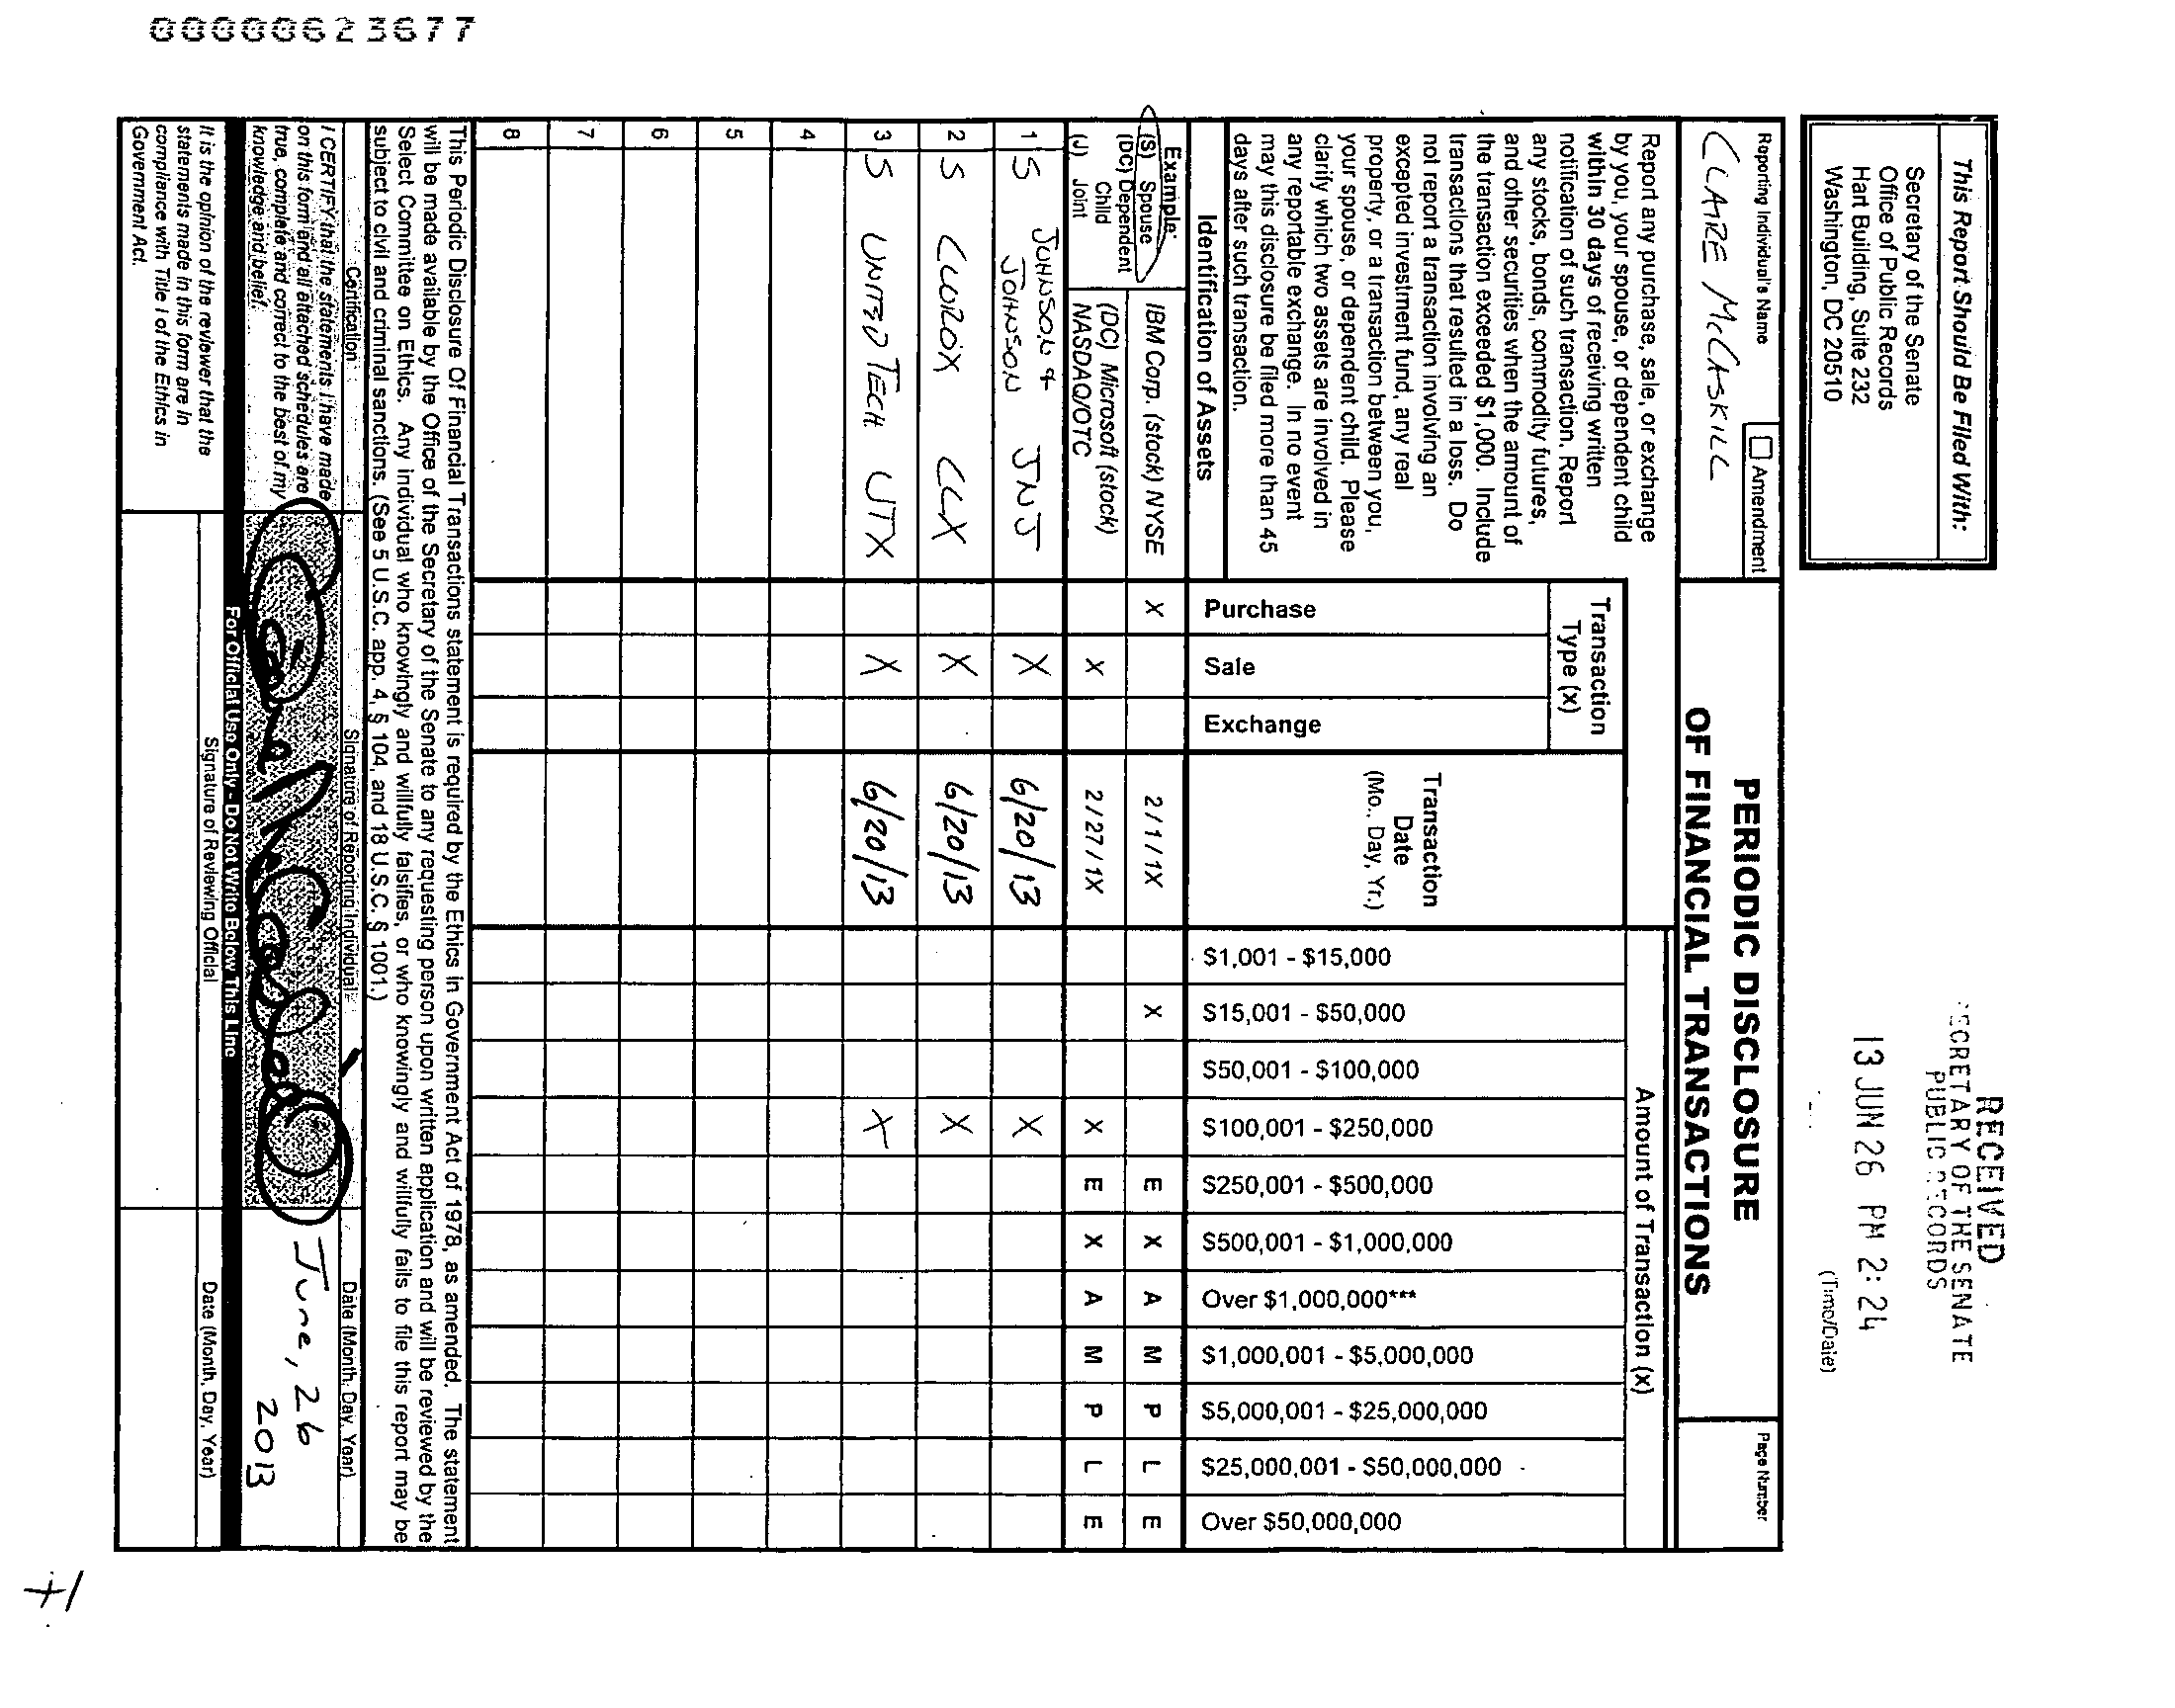 00000623677
RECEIVED
SECRETARY OF THE SENATE
PUBLIC RECORDS
13 JUN 26 PM 2:24
(Time/Date)
This Report Should Be Filed With:
Secretary of the Senate
Office of Public Records
Hart Building, Suite 232
Washington, DC 20510
Reporting Individual's Name
Amendment
CLAIRE McCASKILL
PERIODIC DISCLOSURE
OF FINANCIAL TRANSACTIONS
Page Number
Report any purchase, sale, or exchange
by you, your spouse, or dependent child
within 30 days of receiving written
notification of such transaction. Report
any stocks, bonds, commodity futures,
and other securities when the amount of
the transaction exceeded $1,000. Include
transactions that resulted in a loss. Do
not report a transaction involving an
excepted investment fund, any real
property, or a transaction between you,
your spouse, or dependent child. Please
clarify which two assets are involved in
any reportable exchange. In no event
may this disclosure be filed more than 45
days after such transaction.
Identification of Assets
Transaction
Type (x)
Purchase
Sale
Exchange
Transaction
Date
(Mo., Day, Yr.)
Amount of Transaction (x)
$1,001 - $15,000
$15,001 - $50,000
$50,001 - $100,000
$100,001 - $250,000
$250,001 - $500,000
$500,001 - $1,000,000
Over $1,000,000***
$1,000,001 - $5,000,000
$5,000,001 - $25,000,000
$25,000,001 - $50,000,000
Over $50,000,000
Example:
(S) Spouse
(DC) Dependent
Child
(J) Joint
IBM Corp. (stock) NYSE X 2/1/1X X E X A M P L E
(DC) Microsoft (stock)
NASDAQ/OTC X 2/27/1X X E X A M P L E
1 S JOHNSON & JOHNSON JNJ X 6/20/13 X
2 S CLOROX CLX X 6/20/13 X
3 S UNITED TECH UTX X 6/20/13 X
4
5
6
7
8
This Periodic Disclosure Of Financial Transactions statement is required by the Ethics in Government Act of 1978, as amended. The statement
will be made available by the Office of the Secretary of the Senate to any requesting person upon written application and will be reviewed by the
Select Committee on Ethics. Any individual who knowingly and willfully falsifies, or who knowingly and willfully fails to file this report may be
subject to civil and criminal sanctions. (See 5 U.S.C. app. 4, § 104, and 18 U.S.C. § 1001.)
Certification
Signature of Reporting Individual
Date (Month, Day, Year)
I CERTIFY that the statements I have made
on this form and all attached schedules are
true, complete and correct to the best of my
knowledge and belief.
Claire McCaskill
June, 26
2013
For Official Use Only - Do Not Write Below This Line
It is the opinion of the reviewer that the
statements made in this form are in
compliance with Title I of the Ethics in
Government Act.
Signature of Reviewing Official
Date (Month, Day, Year)